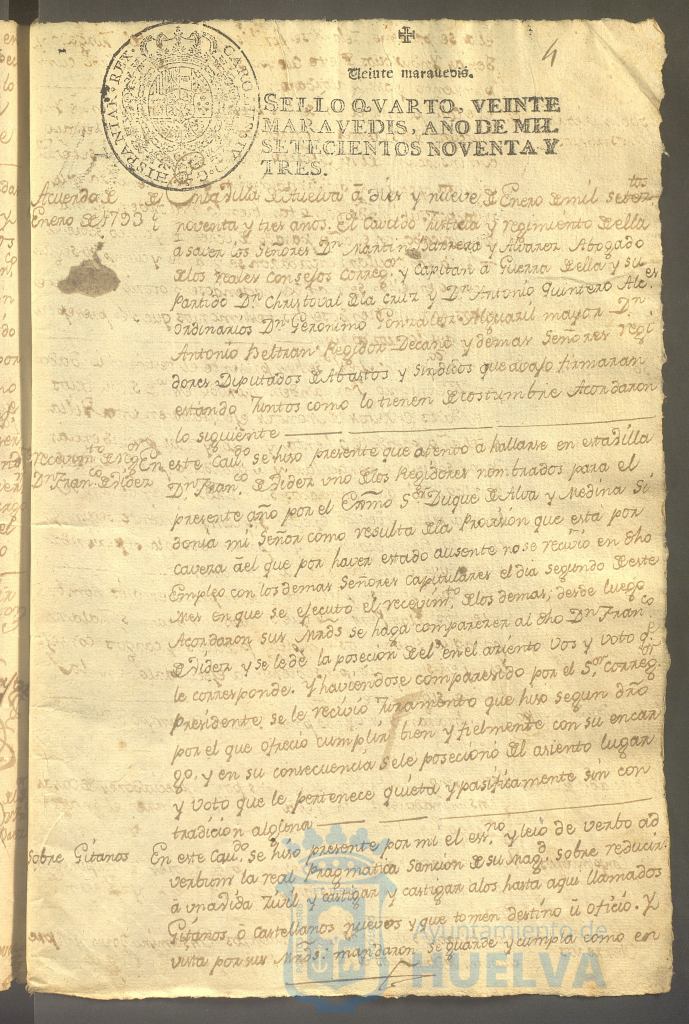 4
Veinte maravedis.
SELLO QVARTO, VEINTE
MARAVEDIS, AÑO DE MIL
SETECIENTOS NOVENTA Y
TRES.
CAROLUS IV D G HISPANIAR REX
Acuerdo de
Enero de 1793
En la Villa de Huelva á dies y nueve de Enero de mil setectos
noventa y tres años. El Cavildo Justicia y regimiento de ella
á saver los Señores Dn Martin Barrera y Alvarez Abogado
de los reales Consejos Corregor y Capitan á Guerra de ella y su
partido Dn Christoval de la Cruz y Dn Antonio Quintero Alces
ordinarios Dn Geronimo Gonzalez Alguazil mayor Dn
Antonio Beltran Regidor Decano y demas Señores regi
dores Diputados de Abastos y Sindicos que avajo firmaran
estando Juntos como lo tienen de costumbre Acordaron
lo siguiente
recevimto de rgor
Dn Franco de Vides
En este Cavdo se hiso presente que atento a hallarse en esta Villa
Dn Franco de Vides uno de los Regidores nombrados para el
presente año por el Exmo Sor Duque de Alva y Medina Si
donia mi Señor como resulta de la Provision que esta por
cavera del que por haver estado ausente no se recivio en dho
Empleo con los demas Señores capitulares el dia segundo de este
Mes en que se efecuto el recevimto de los demas, desde luego
Acordaron sus Mrds se haga comparecer al dho Dn Franco
de Vides y se le de la posecion de el en el asiento vos y voto q.
le corresponde. Y haviendose comparesido por el Sor Corregor
presidente se le recivio Juramento que hiso segun dro
por el que ofrecio cumplir bien y fielmente con su encar
go, y en su consecuencia se le posecionó del asiento lugar
y voto que le pertenece quieta y pasificamente sin con
tradicion alguna
Sobre Gitanos
En este Cavdo se hiso presente por mi el esno y leio de verbo ad
verbum la real Pragmatica Sancion de su Magd sobre reducir
á una vida Zivil y castigar y castigar a los hasta aqui llamados
Gitanos, o Castellanos nuevos y que tomen destino ú oficio. Y
vista por sus Mrds. mandaron se guarde y cumpla como en
Ayuntamiento de
HUELVA